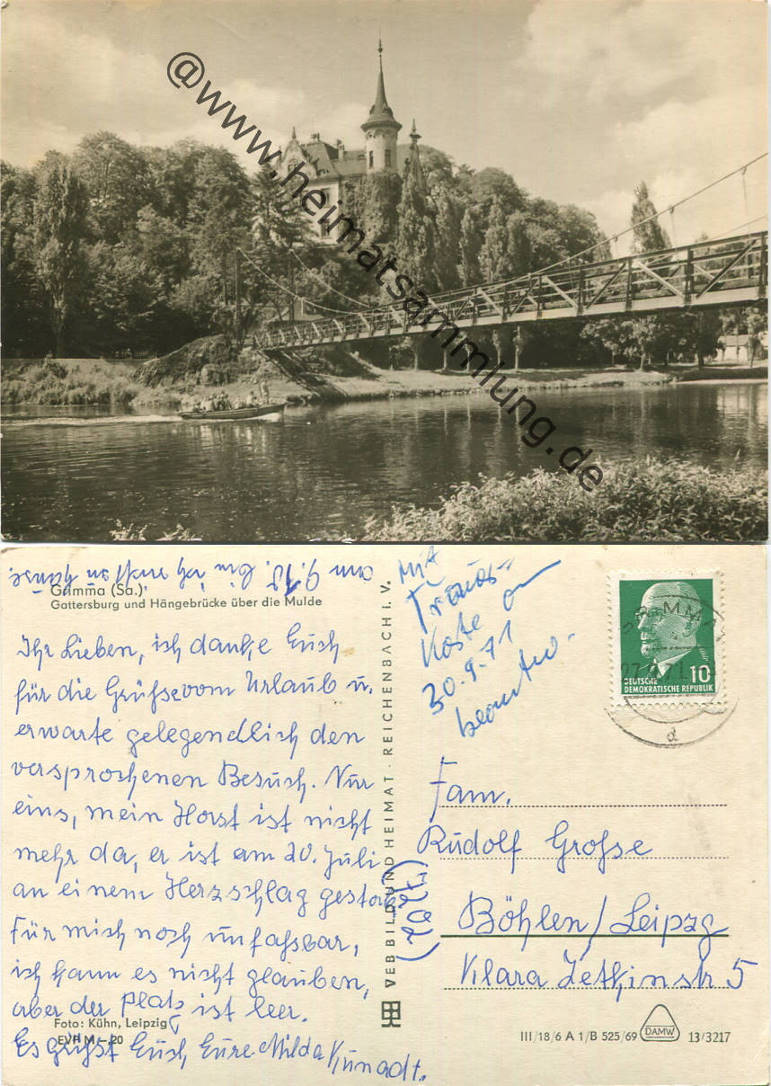 @www.heimatsammlung.de
am 9.10. bin ich nicht zu Hause.
Grimma (Sa.)
Gattersburg und Hängebrücke über die Mulde
Ihr Lieben, ich danke Euch
für die Grüße vom Urlaub u.
erwarte gelegendlich den
versprochenen Besuch. Nur
eins, mein Horst ist nicht
mehr da, er ist am 20. Juli
an einem Herzschlag gestorb.
Für mich noch unfassbar,
ich kann es nicht glauben,
aber der Platz ist leer.
Es grüßt Euch Eure Milda Kunadt.
Foto: Kühn, Leipzig
EVP M -.20
VEB BILD UND HEIMAT · REICHENBACH I. V.
(7202)
Mit
Trauer-
Karte am
30.9.71
beantw.
GRIMMA
DEUTSCHE
DEMOKRATISCHE REPUBLIK
10
d
Fam.
Rudolf Große
Böhlen/Leipzg
Klara Zetkinstr 5
III/18/6 A 1/B 525/69 DAMW 13/3217